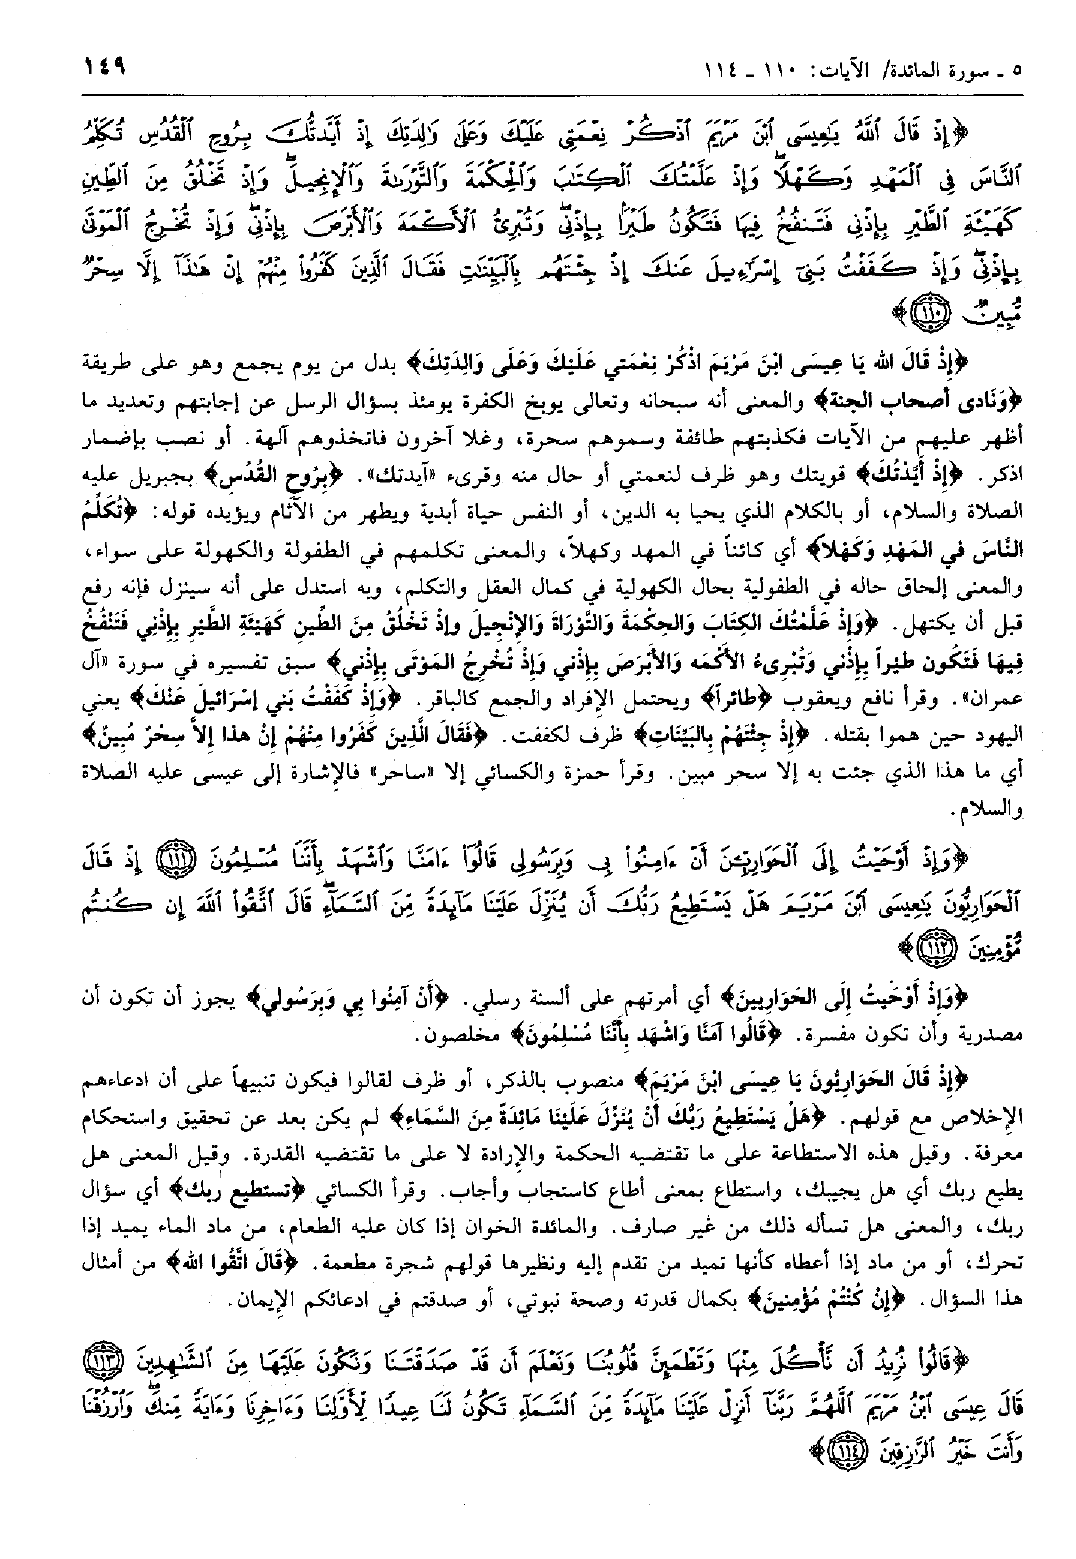 ٥ ـ سورة المائدة/ الآيات: ١١٠ ـ ١١٤ ١٤٩
﴿إِذْ قَالَ ٱللَّهُ يَٰعِيسَى ٱبْنَ مَرْيَمَ ٱذْكُرْ نِعْمَتِى عَلَيْكَ وَعَلَىٰ وَٰلِدَتِكَ إِذْ أَيَّدتُّكَ بِرُوحِ ٱلْقُدُسِ تُكَلِّمُ
ٱلنَّاسَ فِى ٱلْمَهْدِ وَكَهْلًا ۖ وَإِذْ عَلَّمْتُكَ ٱلْكِتَٰبَ وَٱلْحِكْمَةَ وَٱلتَّوْرَىٰةَ وَٱلْإِنجِيلَ ۖ وَإِذْ تَخْلُقُ مِنَ ٱلطِّينِ
كَهَيْـَٔةِ ٱلطَّيْرِ بِإِذْنِى فَتَنفُخُ فِيهَا فَتَكُونُ طَيْرًۢا بِإِذْنِى ۖ وَتُبْرِئُ ٱلْأَكْمَهَ وَٱلْأَبْرَصَ بِإِذْنِى ۖ وَإِذْ تُخْرِجُ ٱلْمَوْتَىٰ
بِإِذْنِى ۖ وَإِذْ كَفَفْتُ بَنِىٓ إِسْرَٰٓءِيلَ عَنكَ إِذْ جِئْتَهُم بِٱلْبَيِّنَٰتِ فَقَالَ ٱلَّذِينَ كَفَرُوا۟ مِنْهُمْ إِنْ هَٰذَآ إِلَّا سِحْرٌ
مُّبِينٌ ١١٠﴾
﴿إِذْ قَالَ الله يَا عِيسَى ابْنَ مَرْيَمَ اذْكُرْ نِعْمَتي عَلَيْكَ وَعَلَى وَالِدَتِكَ﴾ بدل من يوم يجمع وهو على طريقة
﴿وَنَادى أصحاب الجنة﴾ والمعنى أنه سبحانه وتعالى يوبخ الكفرة يومئذ بسؤال الرسل عن إجابتهم وتعديد ما
أظهر عليهم من الآيات فكذبتهم طائفة وسموهم سحرة، وغلا آخرون فاتخذوهم آلهة. أو نصب بإضمار
اذكر. ﴿إِذْ أَيَّدْتُكَ﴾ قويتك وهو ظرف لنعمتي أو حال منه وقرىء «آيدتك». ﴿بِرُوحِ القُدُسِ﴾ بجبريل عليه
الصلاة والسلام، أو بالكلام الذي يحيا به الدين، أو النفس حياة أبدية ويطهر من الآثام ويؤيده قوله: ﴿تُكَلِّمُ
النَّاسَ في المَهْدِ وَكَهْلاً﴾ أي كائناً في المهد وكهلاً، والمعنى تكلمهم في الطفولة والكهولة على سواء،
والمعنى إلحاق حاله في الطفولية بحال الكهولية في كمال العقل والتكلم، وبه استدل على أنه سينزل فإنه رفع
قبل أن يكتهل. ﴿وَإِذْ عَلَّمْتُكَ الكِتَابَ وَالحِكْمَةَ وَالتَّوْرَاةَ وَالإِنْجِيلَ وإذْ تَخْلُقُ مِنَ الطِّينِ كَهَيْئَةِ الطَّيْرِ بِإِذْنِي فَتَنْفُخُ
فِيهَا فَتَكُون طَيْراً بِإِذْني وَتُبْرِىءُ الأكْمَه وَالأَبْرَصَ بِإِذْني وَإِذْ تُخْرِجُ المَوْتَى بِإِذْني﴾ سبق تفسيره في سورة «آل
عمران». وقرأ نافع ويعقوب ﴿طائراً﴾ ويحتمل الإفراد والجمع كالباقر. ﴿وَإِذْ كَفَفْتُ بَني إِسْرَائيلَ عَنْكَ﴾ يعني
اليهود حين هموا بقتله. ﴿إذْ جِئْتَهُمْ بِالبَيِّنَاتِ﴾ ظرف لكففت. ﴿فَقَالَ الَّذينَ كَفَرُوا مِنْهُمْ إِنْ هذا إِلاَّ سِحْرٌ مُبينٌ﴾
أي ما هذا الذي جئت به إلا سحر مبين. وقرأ حمزة والكسائي إلا «ساحر» فالإشارة إلى عيسى عليه الصلاة
والسلام.
﴿وَإِذْ أَوْحَيْتُ إِلَى ٱلْحَوَارِيِّـۧنَ أَنْ ءَامِنُوا۟ بِى وَبِرَسُولِى قَالُوٓا۟ ءَامَنَّا وَٱشْهَدْ بِأَنَّنَا مُسْلِمُونَ ١١١ إِذْ قَالَ
ٱلْحَوَارِيُّونَ يَٰعِيسَى ٱبْنَ مَرْيَمَ هَلْ يَسْتَطِيعُ رَبُّكَ أَن يُنَزِّلَ عَلَيْنَا مَآئِدَةً مِّنَ ٱلسَّمَآءِ ۖ قَالَ ٱتَّقُوا۟ ٱللَّهَ إِن كُنتُم
مُّؤْمِنِينَ ١١٢﴾
﴿وَإِذْ أَوْحَيْتُ إِلَى الحَوَاريينَ﴾ أي أمرتهم على ألسنة رسلي. ﴿أَنْ آمِنُوا بِي وَبِرَسُولي﴾ يجوز أن تكون أن
مصدرية وأن تكون مفسرة. ﴿قَالُوا آمَنَّا وَاشْهَد بِأَنَّنَا مُسْلِمُونَ﴾ مخلصون.
﴿إذْ قَالَ الحَوَارِيُّونَ يَا عِيسَى ابْنَ مَرْيَمَ﴾ منصوب بالذكر، أو ظرف لقالوا فيكون تنبيهاً على أن ادعاءهم
الإخلاص مع قولهم. ﴿هَلْ يَسْتَطِيعُ رَبُّكَ أَنْ يُنَزِّلَ عَلَيْنَا مَائِدَةً مِنَ السَّمَاءِ﴾ لم يكن بعد عن تحقيق واستحكام
معرفة. وقيل هذه الاستطاعة على ما تقتضيه الحكمة والإرادة لا على ما تقتضيه القدرة. وقيل المعنى هل
يطيع ربك أي هل يجيبك، واستطاع بمعنى أطاع كاستجاب وأجاب. وقرأ الكسائي ﴿تستطيع ربك﴾ أي سؤال
ربك، والمعنى هل تسأله ذلك من غير صارف. والمائدة الخوان إذا كان عليه الطعام، من ماد الماء يميد إذا
تحرك، أو من ماد إذا أعطاه كأنها تميد من تقدم إليه ونظيرها قولهم شجرة مطعمة. ﴿قَالَ اتَّقُوا الله﴾ من أمثال
هذا السؤال. ﴿إِنْ كُنْتُمْ مُؤْمِنينَ﴾ بكمال قدرته وصحة نبوتي، أو صدقتم في ادعائكم الإيمان.
﴿قَالُوا۟ نُرِيدُ أَن نَّأْكُلَ مِنْهَا وَتَطْمَئِنَّ قُلُوبُنَا وَنَعْلَمَ أَن قَدْ صَدَقْتَنَا وَنَكُونَ عَلَيْهَا مِنَ ٱلشَّٰهِدِينَ ١١٣
قَالَ عِيسَى ٱبْنُ مَرْيَمَ ٱللَّهُمَّ رَبَّنَآ أَنزِلْ عَلَيْنَا مَآئِدَةً مِّنَ ٱلسَّمَآءِ تَكُونُ لَنَا عِيدًا لِّأَوَّلِنَا وَءَاخِرِنَا وَءَايَةً مِّنكَ ۖ وَٱرْزُقْنَا
وَأَنتَ خَيْرُ ٱلرَّٰزِقِينَ ١١٤﴾